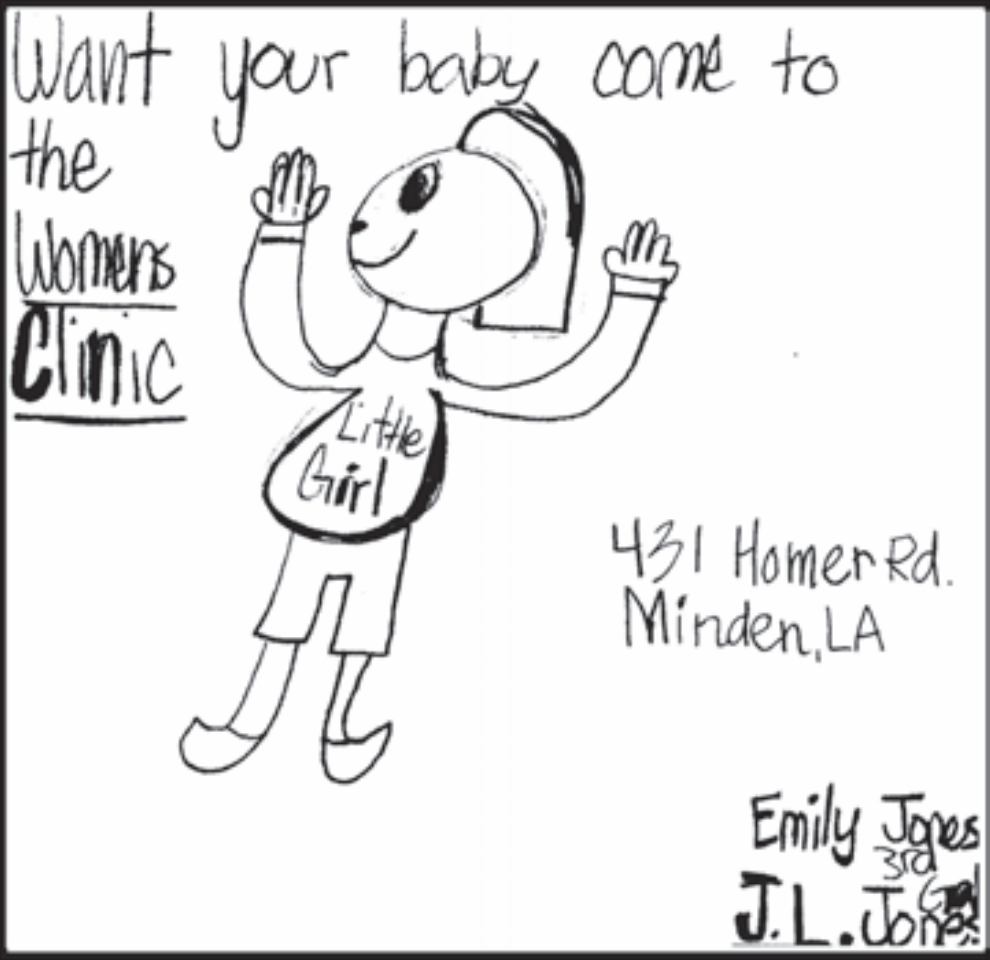 Want your baby come to
the
Womens
Clinic
Little
Girl
431 Homer Rd.
Minden, LA
Emily Jones
3rd
J.L. Jones